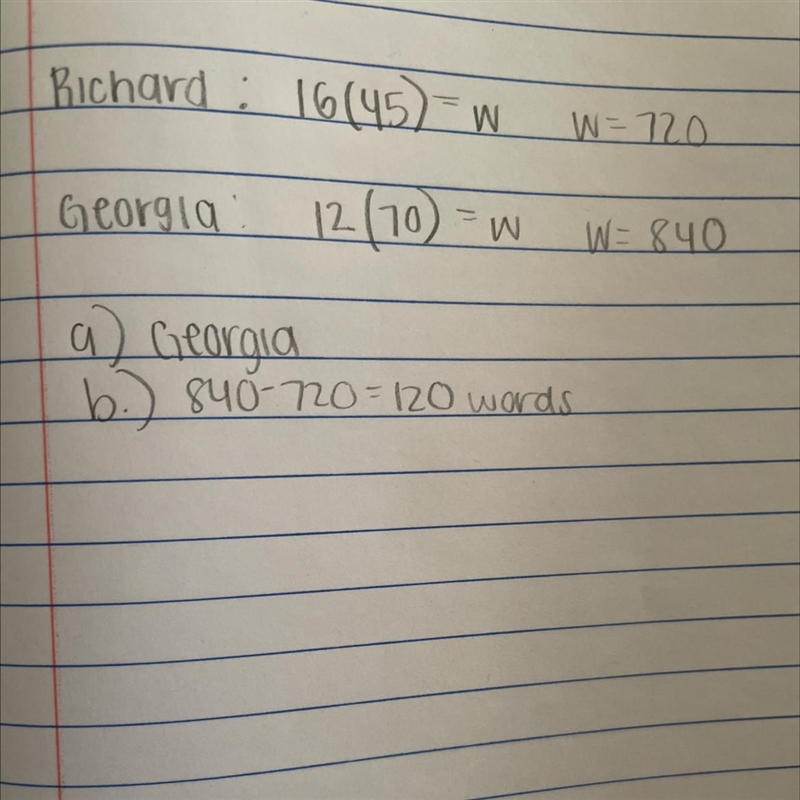 Richard : 16(45) = W W = 720
Georgia : 12(70) = W W = 840
a) Georgia
b.) 840-720 = 120 words